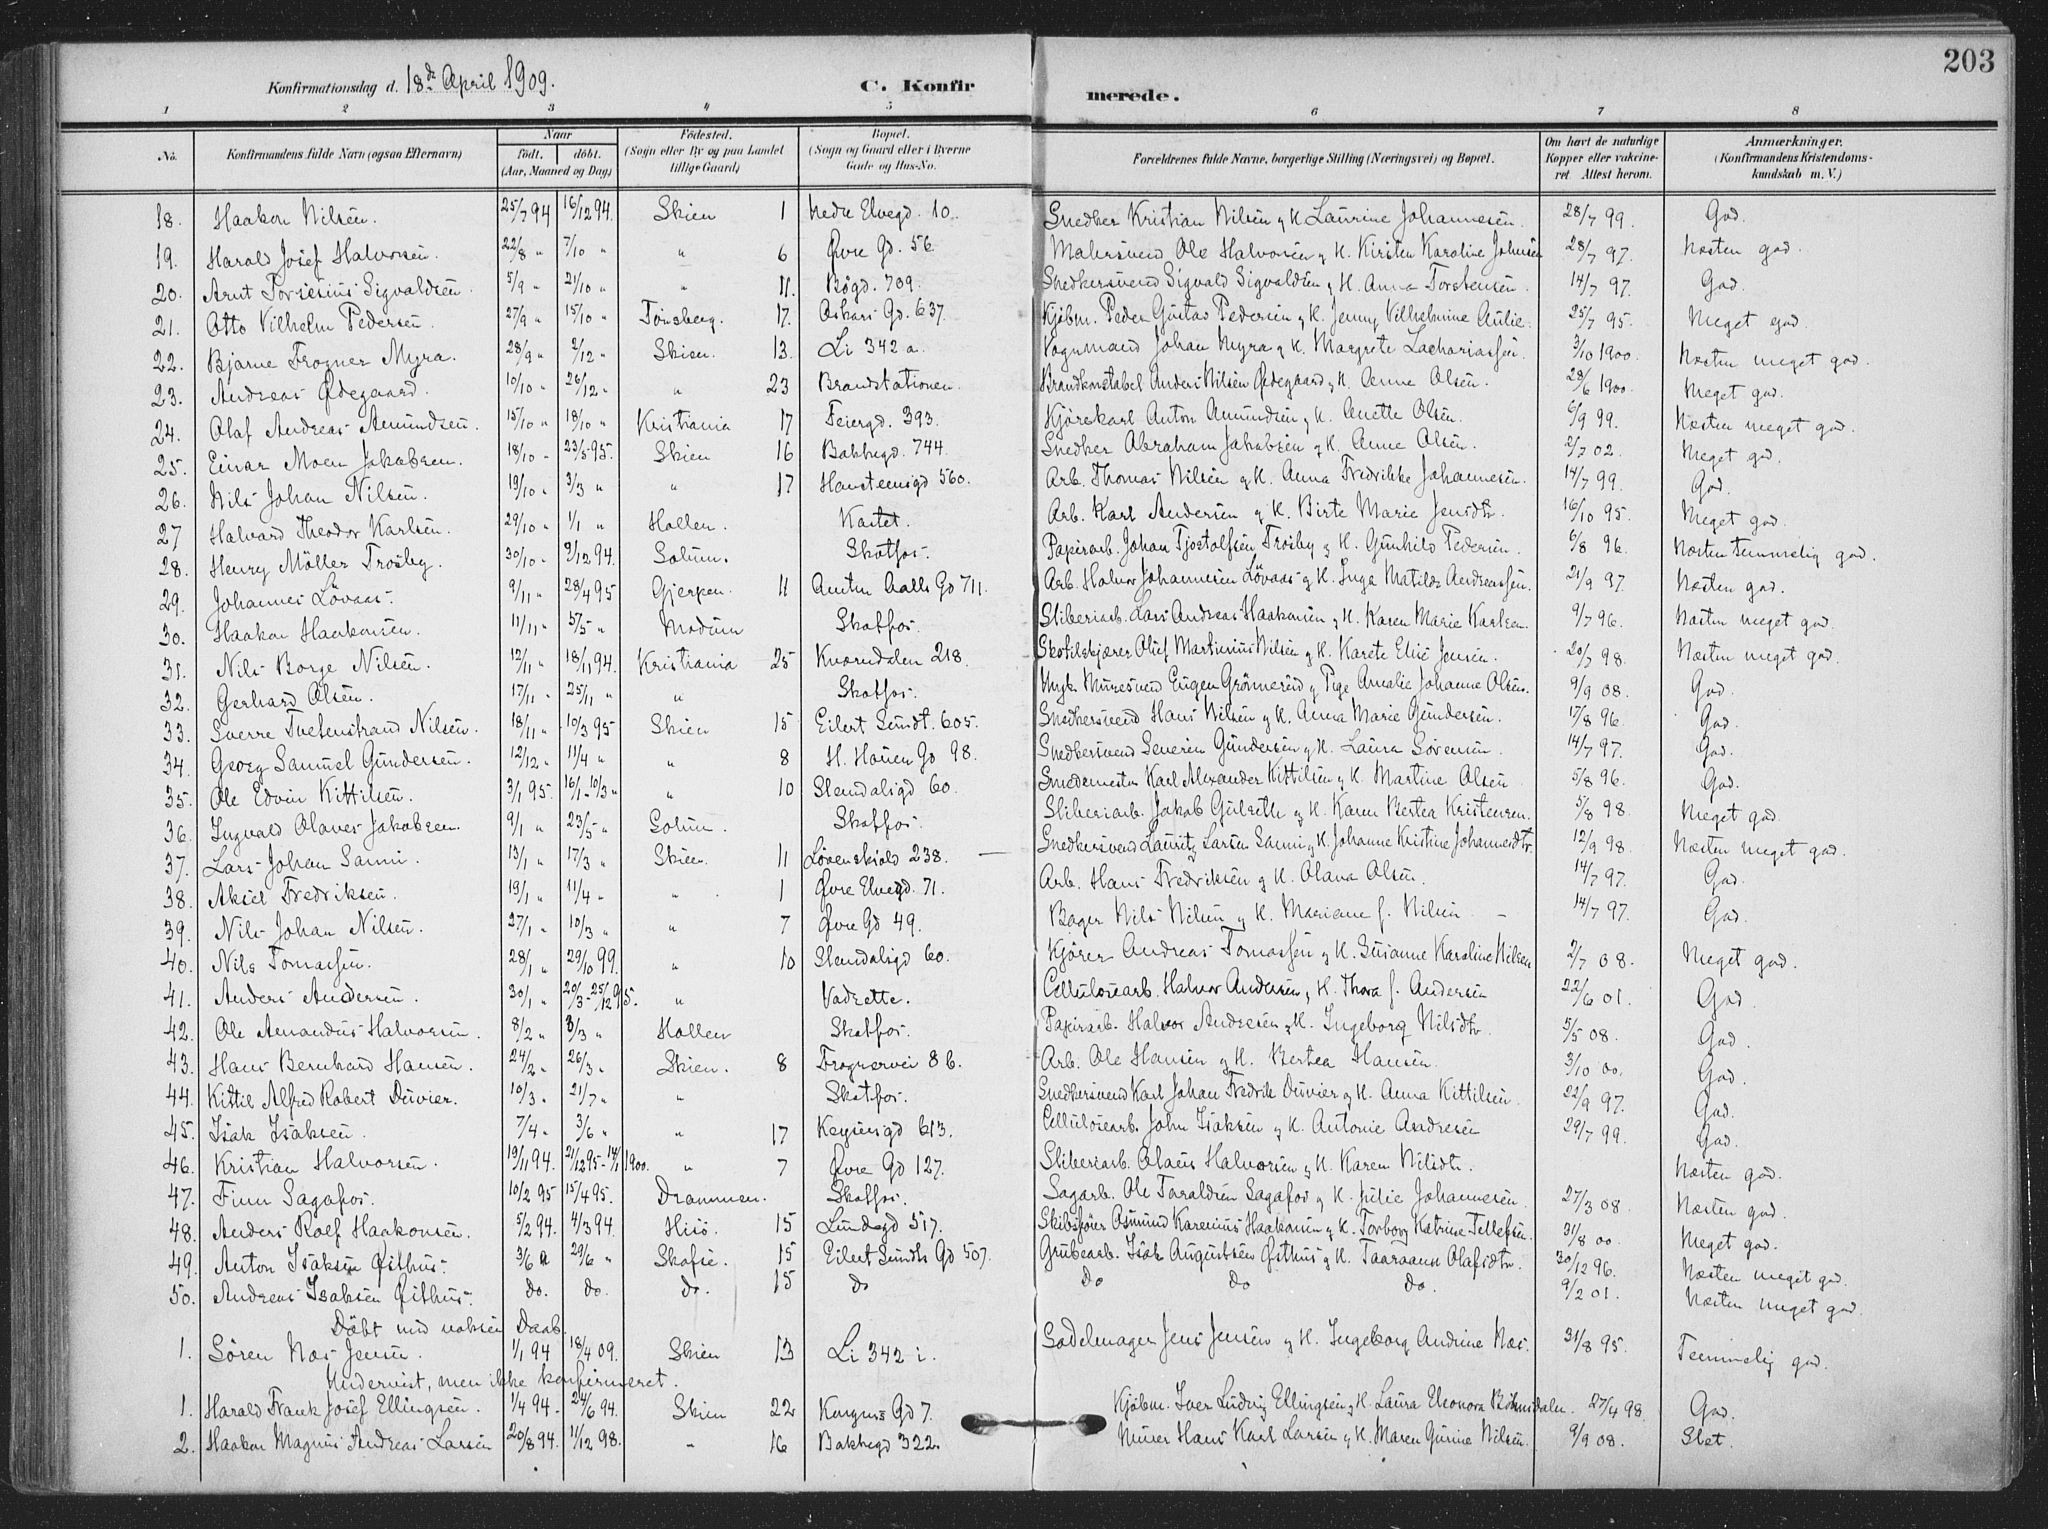 203
Konfirmationsdag d. 18de April 1909. C. Konfirmerede.
1 2 3 4 5 6 7 8
No. Konfirmandens fulde Navn (ogsaa Efternavn) Naar födt. döbt. (Aar, Maaned og Dag) Födested. (Sogn eller By og paa Landet tillige Gaard) Bopæl. (Sogn og Gaard eller i Byerne Gade og Hus-No. Forældrenes fulde Navne, borgerlige Stilling (Næringsvei) og Bopæl. Om havt de naturlige Kopper eller vakcineret. Attest herom. Anmærkninger. (Konfirmandens Kristendomskundskab m. V.)
18. Haakon Nilsen. 25/7 94 16/12 94. Skien 1 Nedre Elvegd. 10. Snedker Kristian Nilsen og H. Laurine Johannesen. 28/7 99. God.
19. Harald Josef Halvorsen. 22/8 " 7/10 " " 6 Øvre Gd. 56. Malersvend Ole Halvorsen og H. Kirsten Karoline Johnsen 28/7 97. Næsten god.
20. Arnt Sigvaldsen. 5/9 " 21/10 " " 11. Bøgd. 709. Snedkersvend Sigvald Sigvaldsen og H. Anna Torstensen. 14/7 97. God.
21. Otto Vilhelm Pedersen. 27/9 " 15/10 " Tönsberg. 17. Oskars Gd. 637. Kjöbm. Peder Gustav Pedersen og H. Jenny Vilhelmine Aulie. 25/7 95. Meget god.
22. Bjarne Frogner Myra. 28/9 " 2/12 " Skien. 13. Li 342 a. Vognmand Johan Myra og H. Margrete Zachariassen. 3/10 1900. Næsten meget god.
23. Andreas Ødegaard. 10/10 " 26/12 " " 23 Brandstationen. Brandkonstabel Anders Nilsen Ødegaard og H. Anne Olsen. 28/6 1900. Meget god.
24. Olaf Andreas Amundsen. 15/10 " 18/10 " Kristiania 17 Feiergd. 393. Kjörekarl Anton Amundsen og H. Anette Olsen. 6/9 99. Næsten meget god.
25. Einar Moen Jakobsen. 18/10 " 23/5 95. Skien 16 Bakkegd. 744. Snedker Abraham Jakobsen og H. Anne Olsen. 2/7 02. Meget god.
26. Nils Johan Nilsen. 19/10 " 3/3 " " 17 Hansteensgd 560. Arb. Thomas Nilsen og H. Anna Fredrikke Johannesen. 14/7 99. God.
27 Halvard Theodor Karlsen. 29/10 " 1/1 " Hollen. Kastet. Arb. Karl Andersen og H. Birte Marie Jensdtr. 16/10 95. Meget god.
28. Henry Möller Trosby. 30/10 " 9/12 94. Solum. Skotfos. Papirarb. Johan Tjostolfsen Trosby og H. Gunhild Pedersen. 6/8 96. Næsten temmelig god.
29. Johannes Lövaas. 9/11 " 28/4 95 Gjerpen. 11 Anton Aalls Gd 711. Arb. Halvor Johannesen Lövaas og H. Inga Matilde Andreassen. 21/9 97. Næsten god.
30. Haakon Haakonsen. 11/11 " 5/5 " Modum Skotfos. Sliberiarb. Lars Andreas Haakonsen og H. Karen Marie Karlsen. 9/7 96. Næsten meget god.
31. Nils Borge Nilsen. 12/11 " 18/11 94. Kristiania 25 Kværndalen 218. Skotilskjærer Oluf Martinius Nilsen og H. Karete Elise Jensen. 20/7 98. Næsten meget god.
32. Gerhard Olsen. 17/11 " 25/11 " " Skotfos. Ungk. Muresvend Eugen Grönnerud og Pige Amalie Johanne Olsen. 9/9 08. God.
33. Sverre Tvetenstrand Nilsen. 18/11 " 10/3 95 Skien 15 Eilert Sundt. 605. Snedkersvend Hans Nilsen og H. Anna Marie Gundersen. 17/8 96. God
34. Georg Samuel Gundersen. 12/12 " 11/4 " " 8 H. Houen Gd 98. Snedkersvend Severin Gundersen og H. Laura Sörensen. 14/7 97. God.
35. Ole Edvin Kittilsen. 3/1 95. 16/1 - 10/3 " " 10 Stendalsgd 60. Smedemester Karl Alexander Kittilsen og H. Martine Olsen 5/8 96. God.
36. Ingvald Olaves Jakobsen. 9/1 " 23/5 " Solum. Skotfos. Sliberiarb. Jakob Gulseth og H. Karen Bertea Kristensen. 5/8 98 Meget god.
37. Lars Johan Sanni. 13/1 " 17/3 " Skien. 11 Lövenskiold 238. Snedkersvend Lauritz Larsen Sanni og H. Johanne Kristine Johannesdtr. 12/9 98. Næsten meget god.
38. Aksel Fredriksen. 19/1 " 11/4 " " 1 Øvre Elvegd. 71. Arb. Hans Fredriksen og H. Olava Olsen. 14/7 97. God.
39. Nils Johan Nilsen. 27/1 " 10/3 " " 7 Øvre Gd 49. Bager Nils Nilsen og H. Mariane f. Nilsen 14/7 97. God.
40. Nils Tomassen. 28/1 " 29/10 99. " 10 Stendalsgd 60. Kjörer Andreas Tomassen og H. Susanne Karoline Nilsen 2/7 08. Meget god.
41. Anders Andersen. 30/1 " 20/3 - 25/12 95. " Vadrette. Cellulosearb. Halvor Andersen og H. Thora f. Andersen 22/6 01. God.
42. Ole Amandus Halvorsen. 8/2 " 3/3 " Hollen Skotfos. Papirarb. Halvor Andresen og H. Ingeborg Nilsdtr. 5/5 08. God.
43. Hans Bernhard Hansen. 24/2 " 26/3 " Skien. 8 Frognervei 8 b. Arb. Ole Hansen og H. Bertea Hansen. 3/10 00. God.
44. Kittil Alfred Robert Duvier. 10/3 " 21/7 " " Skotfos. Snedkersvend Karl Johan Fredrik Duvier og H. Anna Kittilsen. 22/9 97. God.
45. Isak Isaksen. 7/4 " 3/6 " " 17 Keysersgd 613. Cellulosearb. John Isaksen og H. Antonie Andresen 29/7 99. God.
46. Kristian Halvorsen. 19/11 94. 21/12 95 - 14/1 1900. " 7 Øvre Gd 127. Sliberiarb. Olaus Halvorsen og H. Karen Nilsdtr. Næsten god.
47. Finn Sagafos. 10/2 95 15/4 95. Drammen. Skotfos. Sagarb. Ole Taraldsen Sagafos og H. Julie Johannesen. 27/3 08. Næsten god.
48. Anders Rolf Haakonsen. 5/2 94. 4/3 94. Hisö. 15 Lundegd 517. Skibsförer Asmund Karenius Haakonsen og H. Torborg Katrine Tellefsen. 31/8 00. Meget god.
49. Anton Isaksen Østhus. 3/6 " 29/6 " Skafse. 15 Eilert Sundts Gd 507. Grubearb. Isak Augustsen Østhus og H. Taaraann Olafsdtr. 30/12 96. Næsten meget god.
50. Andreas Isaksen Østhus. do. do. do. 15 do do do do. 9/2 01. Næsten meget god.
Döbt ved voksen Daab.
1. Sören Næs Jensen. 1/1 94 18/4 09. Skien 13 Li 342 i. Sadelmager Jens Jensen og H. Ingeborg Andrine Næs. 31/8 95. Temmelig god.
Undervist, men ikke konfirmeret.
1. Harald Frank Josef Ellingsen. 1/4 94. 24/6 94. Skien 22 Kongens Gd 7. Kjöbm. Iver Ludvig Ellingsen og H. Laura Eleonora 27/4 98. God.
2. Haakon Magnus Andreas Larsen 20/8 94. 11/12 98. " 16 Bakkegd 322. Murer Hans Karl Larsen og H. Maren Gurine Nilsen. 9/9 08. Slet.